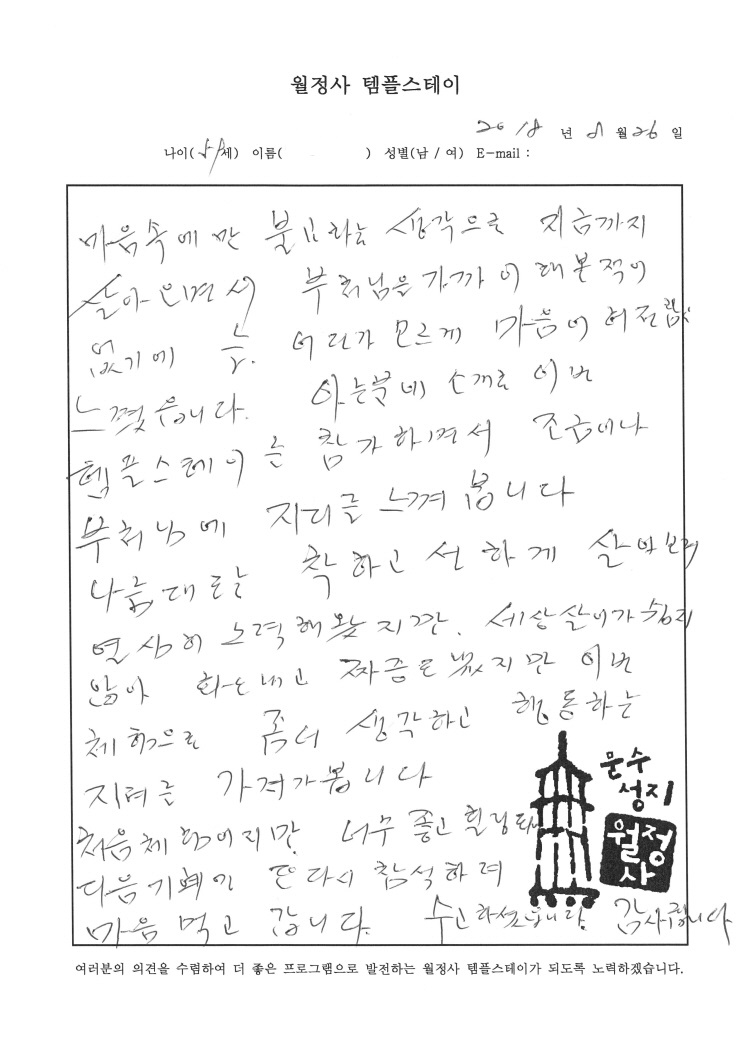 월정사 템플스테이
2018 년 8 월 26 일
나이( 세) 이름( ) 성별(남 / 여) E-mail :
마음속에만 불교라는 생각으로 지금까지
살아오면서 부처님을 가까이 해본적이
없기에 늘. 어딘가 모르게 마음이 허전함
느꼈읍니다. 아는분에 소개로 이번
템플스테이를 참가하면서 조금이나
부처님에 자리를 느껴 봅니다
나름대로 착하고 선하게 살아보려
열심히 노력해왔지만. 세상살이가 쉽지
않아 화도내고 짜증도 냈지만 이번
체험으로 좀더 생각하고 행동하는
지혜를 가져가봅니다
처음체험이지만 너무 좋고 힐링되
다음기회에 또다시 참석하려
마음 먹고 갑니다. 수고하셨습니다. 감사합니다
문수
성지
월정
사
여러분의 의견을 수렴하여 더 좋은 프로그램으로 발전하는 월정사 템플스테이가 되도록 노력하겠습니다.